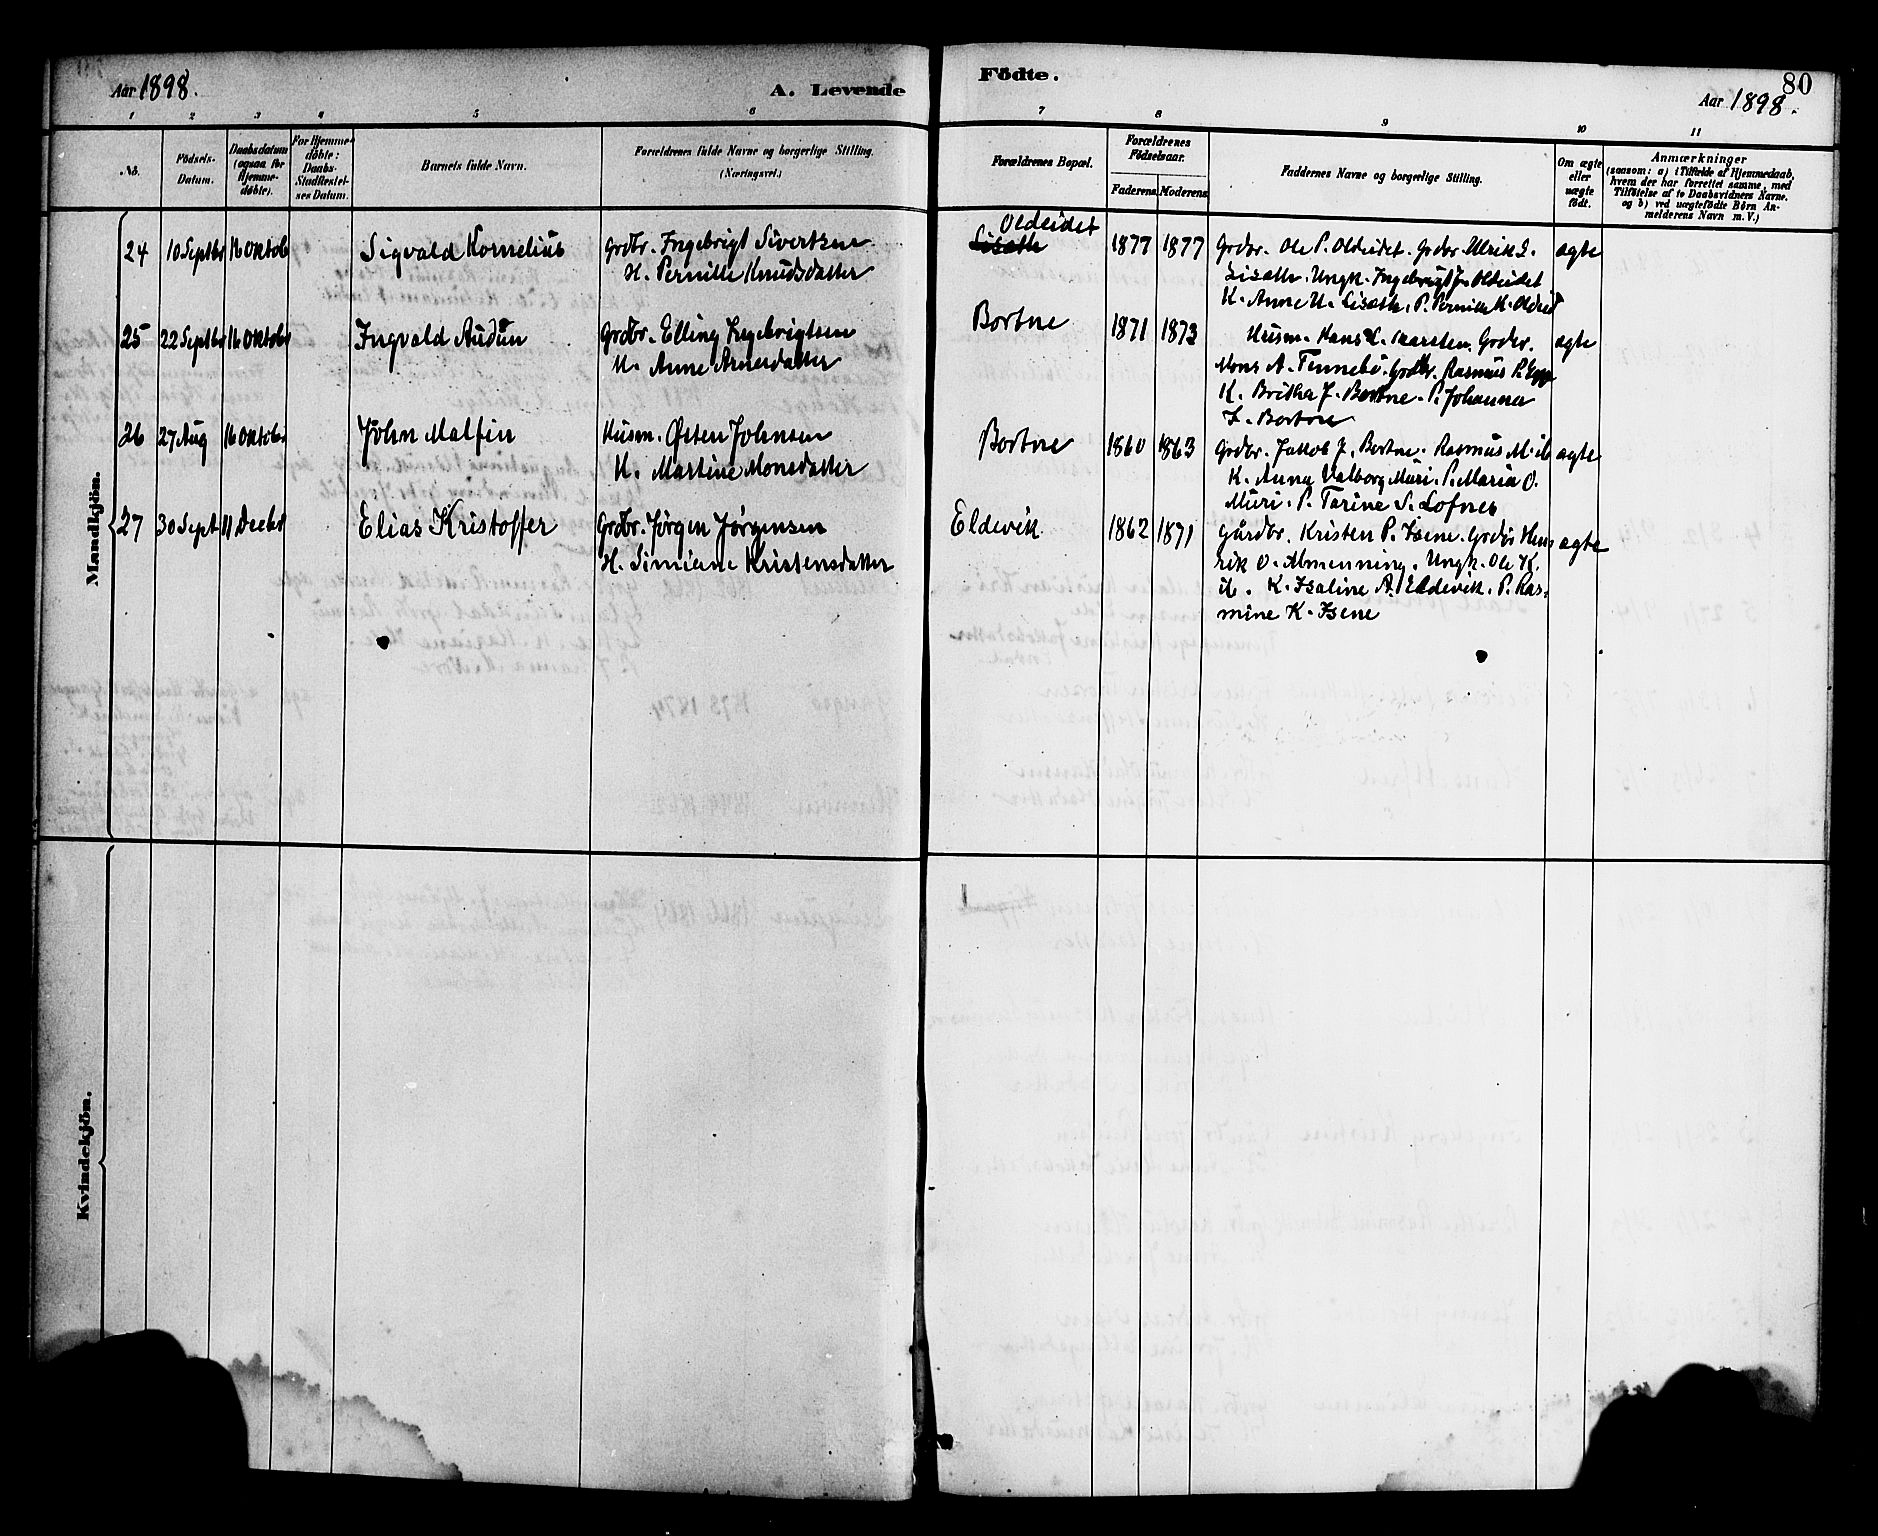 Aar 1898.
A. Levende
Födte.
80
Aar 1898.
1 2 3 4 5 6 7 8 9 10 11
No.
Födsels-
Datum.
Daabsdatum
(ogsaa for
Hjemme-
døbte).
For Hjemme-
døbte:
Daabs-
Stadfæstel-
ses Datum.
Barnets fulde Navn.
Forældrenes fulde Navne og borgerlige Stilling.
(Næringsvei.)
Forældrenes Bopæl.
Forældrenes
Födselsaar.
Faderens. Moderens.
Faddernes Navne og borgerlige Stilling.
Om ægte
eller
uægte
født.
Anmærkninger
(saasom: a) i Tilfælde af Hjemmedaab,
hvem der har forrettet samme, med
Tilföielse af to Daabsvidners Navne.
og b) ved uægtefödte Börn An-
melderens Navn m. V.)
Mandkjön.
24 10 Septbr 16 Oktob Sigvald Kornelius
Grdbr. Ingebrigt Sivertsen
H. Pernille Knudsdatter
Oldeidet
1877 1877
Grdbr. Ole P. Oldeidet. Grdbr Ulrik L.
Lisæth. Ungk. Ingebrigt J. Oldeidet
K. Anne U. Lisæth. P. Pernille K. Oldeid
ægte
25 22 Septbr 16 Oktobr Ingvald Audun
Grdbr. Elling Ingebrigtsen
H. Anne Arnesdatter
Bortne
1871 1873
Husm. Hans L. MaRsten. Grdbr.
Mons A. Tennebö. Grdbr. Rasmus P.
K. Brithe J. Bortne. P. Johanna
L. Bortne
ægte
26 27 Aug 16 Oktobr John Malfin
Husm. Østen Johnsen
H. Martine Monsdatter
Bortne
1860 1863
Grdbr. Jakob J. Bortne. Rasmus M.
K. Anna Valborg Muri. P. Maria O.
Muri. P. Tarine S. Lofnes
ægte
27 30 Sept. 11 Decbr Elias Kristoffer
Grdbr. Jørgen Jørgensen
H. Simiene Kristensdatter
Eldevik
1862 1871
Gårdbr. Kristen P. Isene. Grdbr Hen-
rik O. Almenning. Ungk. Ole K.
K. Isaline A. Eldevik. P. Ras-
mine K. Isene
ægte
Kvindekjön.